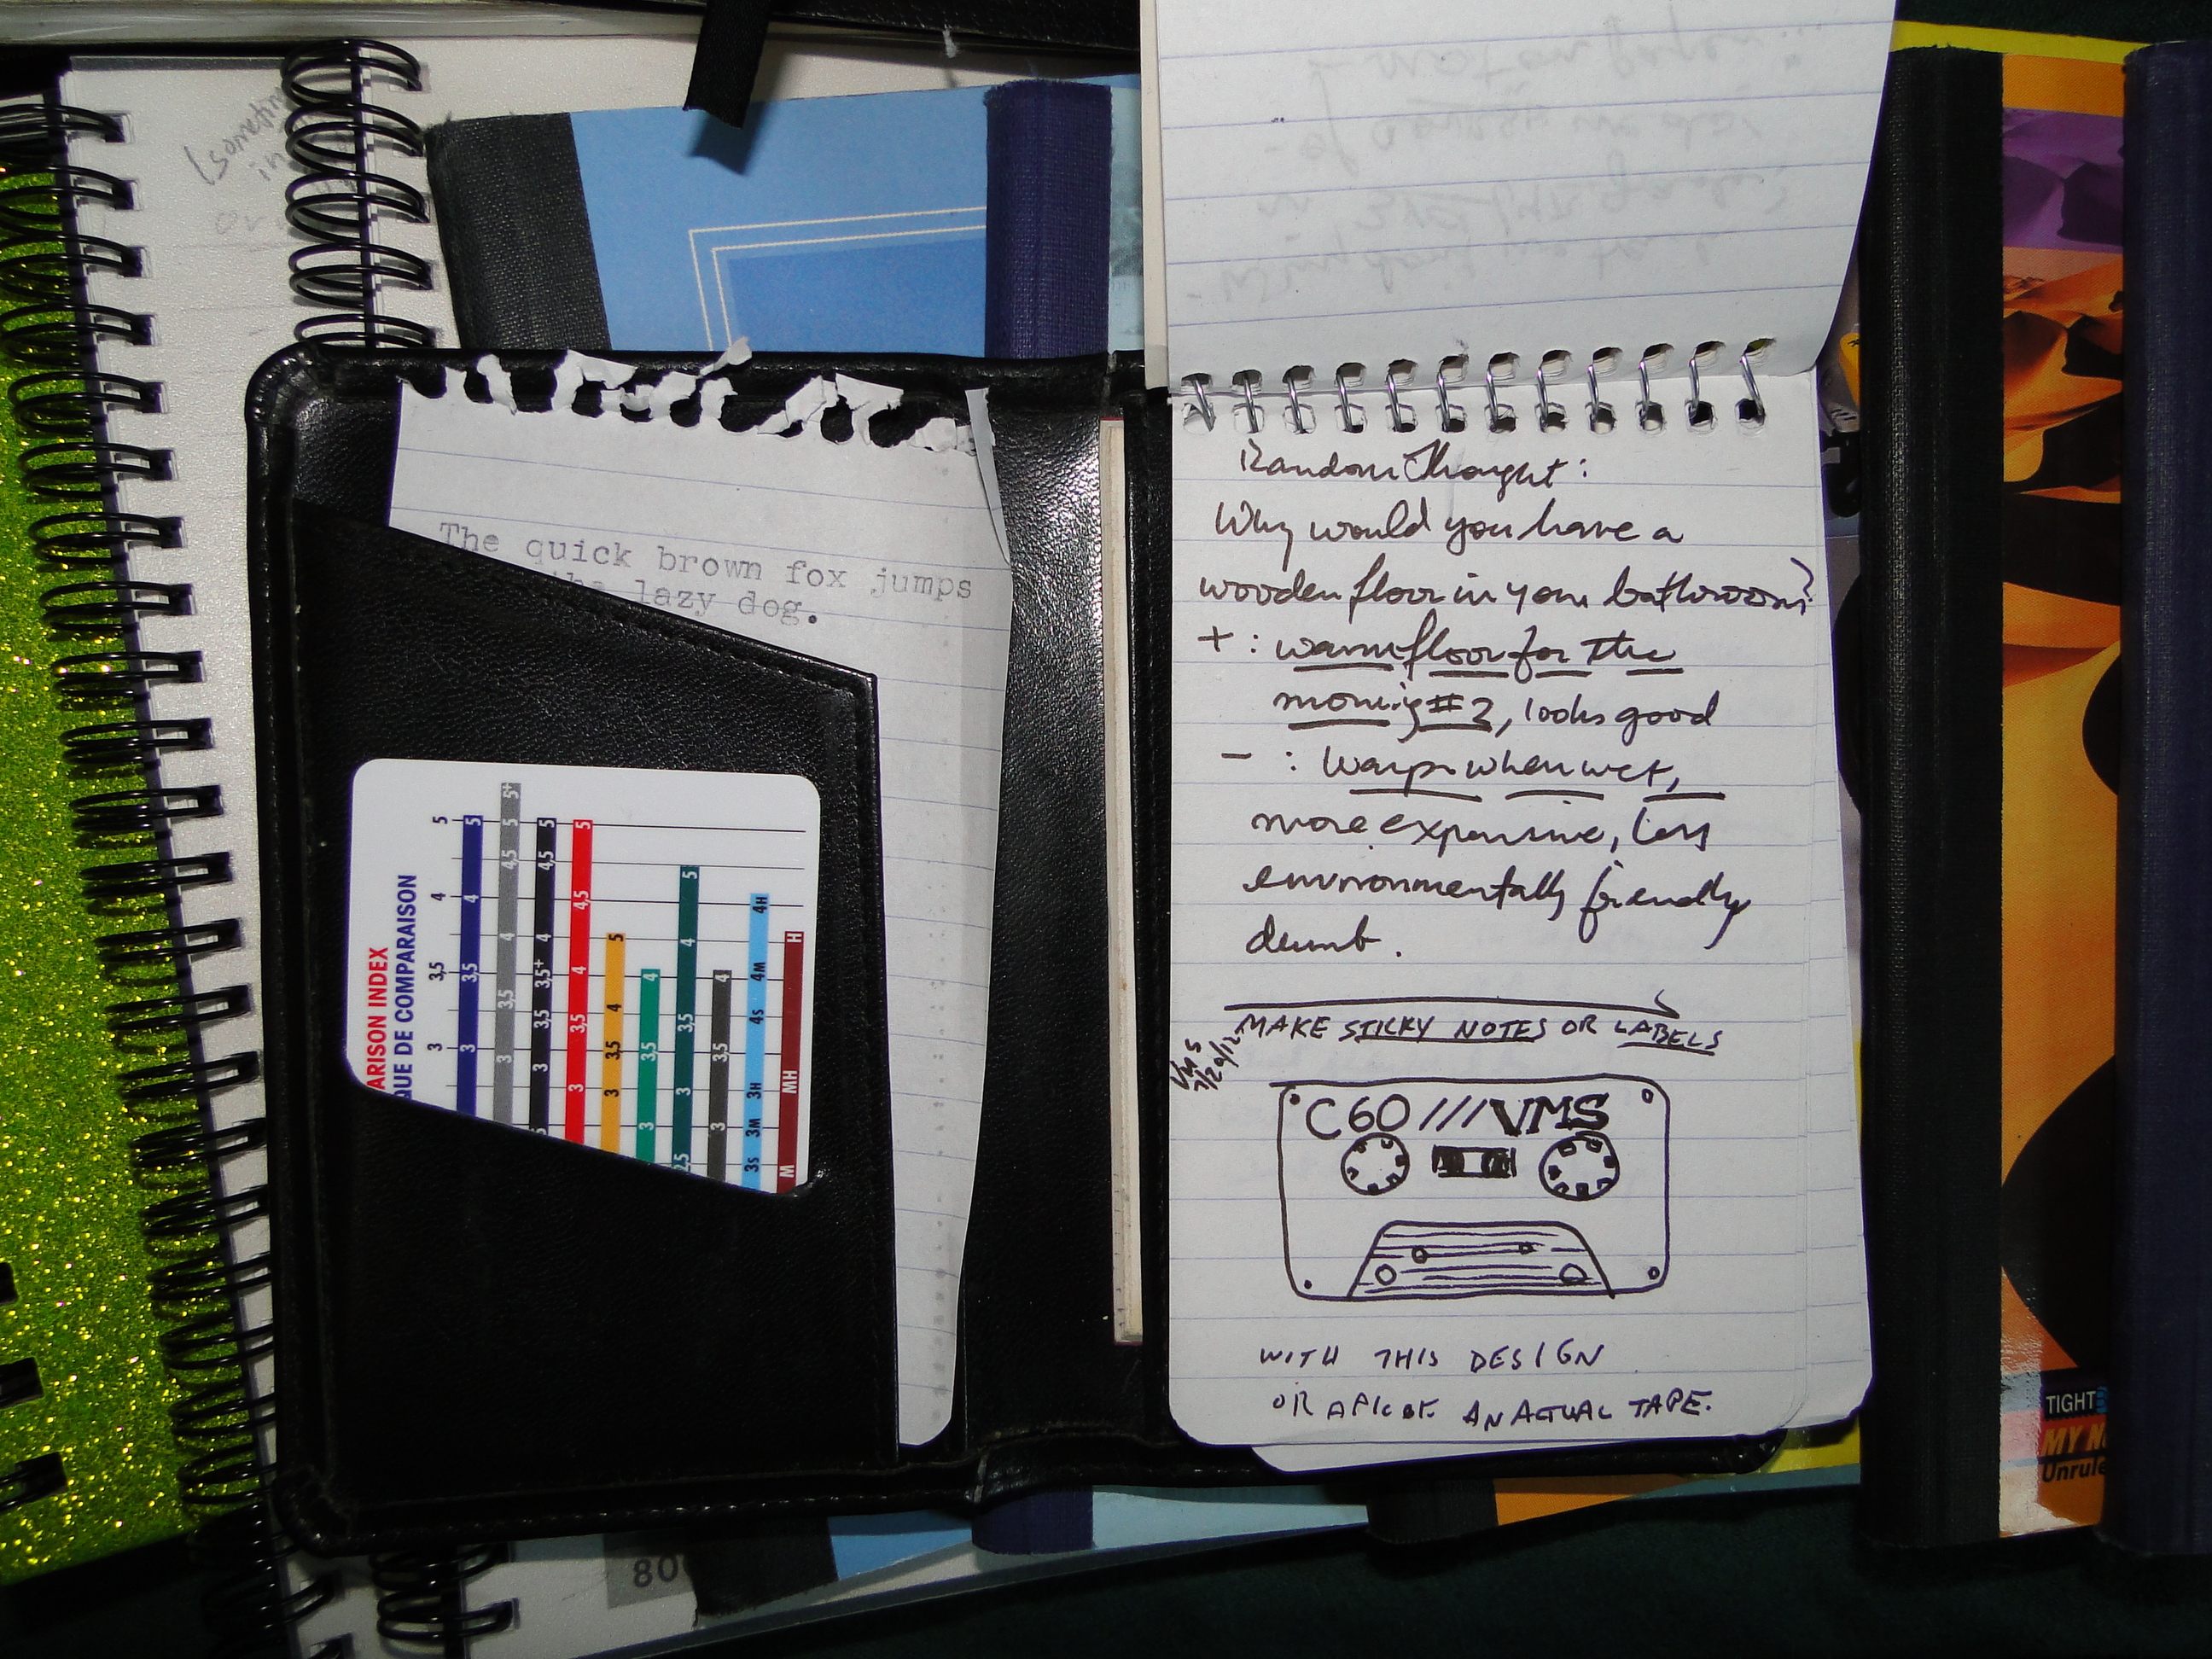 (sometim
in
or
The quick brown fox jumps
the lazy dog.
ARISON INDEX
QUE DE COMPARAISON
5 4 3,5 3
5 4 3,5 3
5+ 5 4,5 4 3,5 3
5 4,5 4 3,5+ 3,5 3
5 4,5 4 3,5 3
5 4 3,5 3
4 3,5 3
5 4 3,5 3 2,5
4 3,5 3
4H 4M 4S 3H 3M 3S
H MH M
Random Thought:
Why would you have a
wooden floor in your bathroom?
+ : warm floor for the
morning #2, looks good
- : Warps when wet,
more expensive, less
environmentally friendly
dumb.
MAKE STICKY NOTES OR LABELS
VMS
7/29/12
C60///VMS
WITH THIS DESIGN
OR A PIC OF AN ACTUAL TAPE.
TIGHT
MY N
Unrule
800